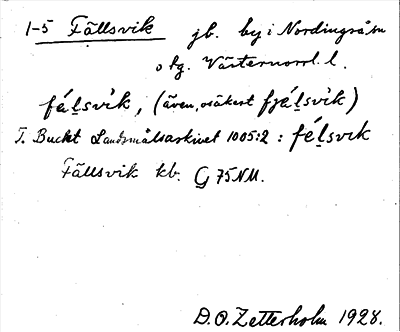 1-5 Fällsvik jb. by i Nordingrå sn
o tg. Västernorrl. l.
fél̲svi̇k, (även, osäkert fjél̲svi̇k)
T. Bucht Landsmålsarkivet 1005:2 : fél̲svɩk
Fällsvik kb. G 75 NM.
D.O. Zetterholm 1928.